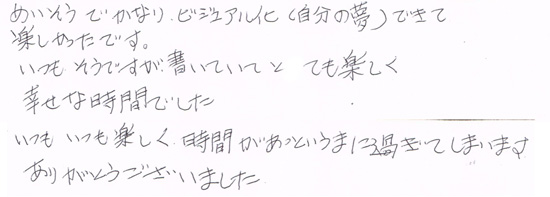 めいそうでかなり、ビジュアル化(自分の夢)できて
楽しかったです。
いつもそうですが、書いていてとても楽しく
幸せな時間でした
いつもいつも楽しく、時間があっというまに過ぎてしまいます
ありがとうございました